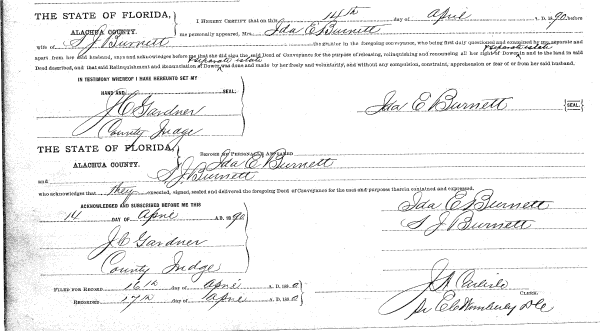 THE STATE OF FLORIDA,
ALACHUA COUNTY.
I HEREBY CERTIFY that on this 14th day of April A. D. 1890, before
me personally appeared, Mrs. Ida E Burnett
wife of S J Burnett the grantor in the foregoing conveyance, who being first duly questioned and examined by me separate and
& separate estate
apart from her said husband, says and acknowledges before me that she did sign the said Deed of Conveyance for the purpose of releasing, relinquishing and renouncing all her right of Dower in and to the land in the said
& separate estate
Deed described, and that said Relinquishment and Renunciation of Dower was done and made by her freely and voluntarily, and without any compulsion, constraint, apprehension or fear of or from her said husband.
IN TESTIMONY WHEREOF I HAVE HEREUNTO SET MY
HAND AND SEAL.
J C Gardner
County Judge
Ida E Burnett {SEAL.}
THE STATE OF FLORIDA,
ALACHUA COUNTY.
BEFORE ME PERSONALLY APPEARED Ida E Burnett
and S J Burnett
who acknowledges that they executed, signed, sealed and delivered the foregoing Deed of Conveyance for the uses and purposes therein contained and expressed.
ACKNOWLEDGED AND SUBSCRIBED BEFORE ME THIS
14 DAY OF April A.D. 1890
J C Gardner
County Judge
Ida E Burnett
S J Burnett
FILED FOR RECORD 16th day of April A. D. 1890
RECORDED 17th day of April A. D. 1890
J A Carlisle CLERK.
E C Wimberly D C